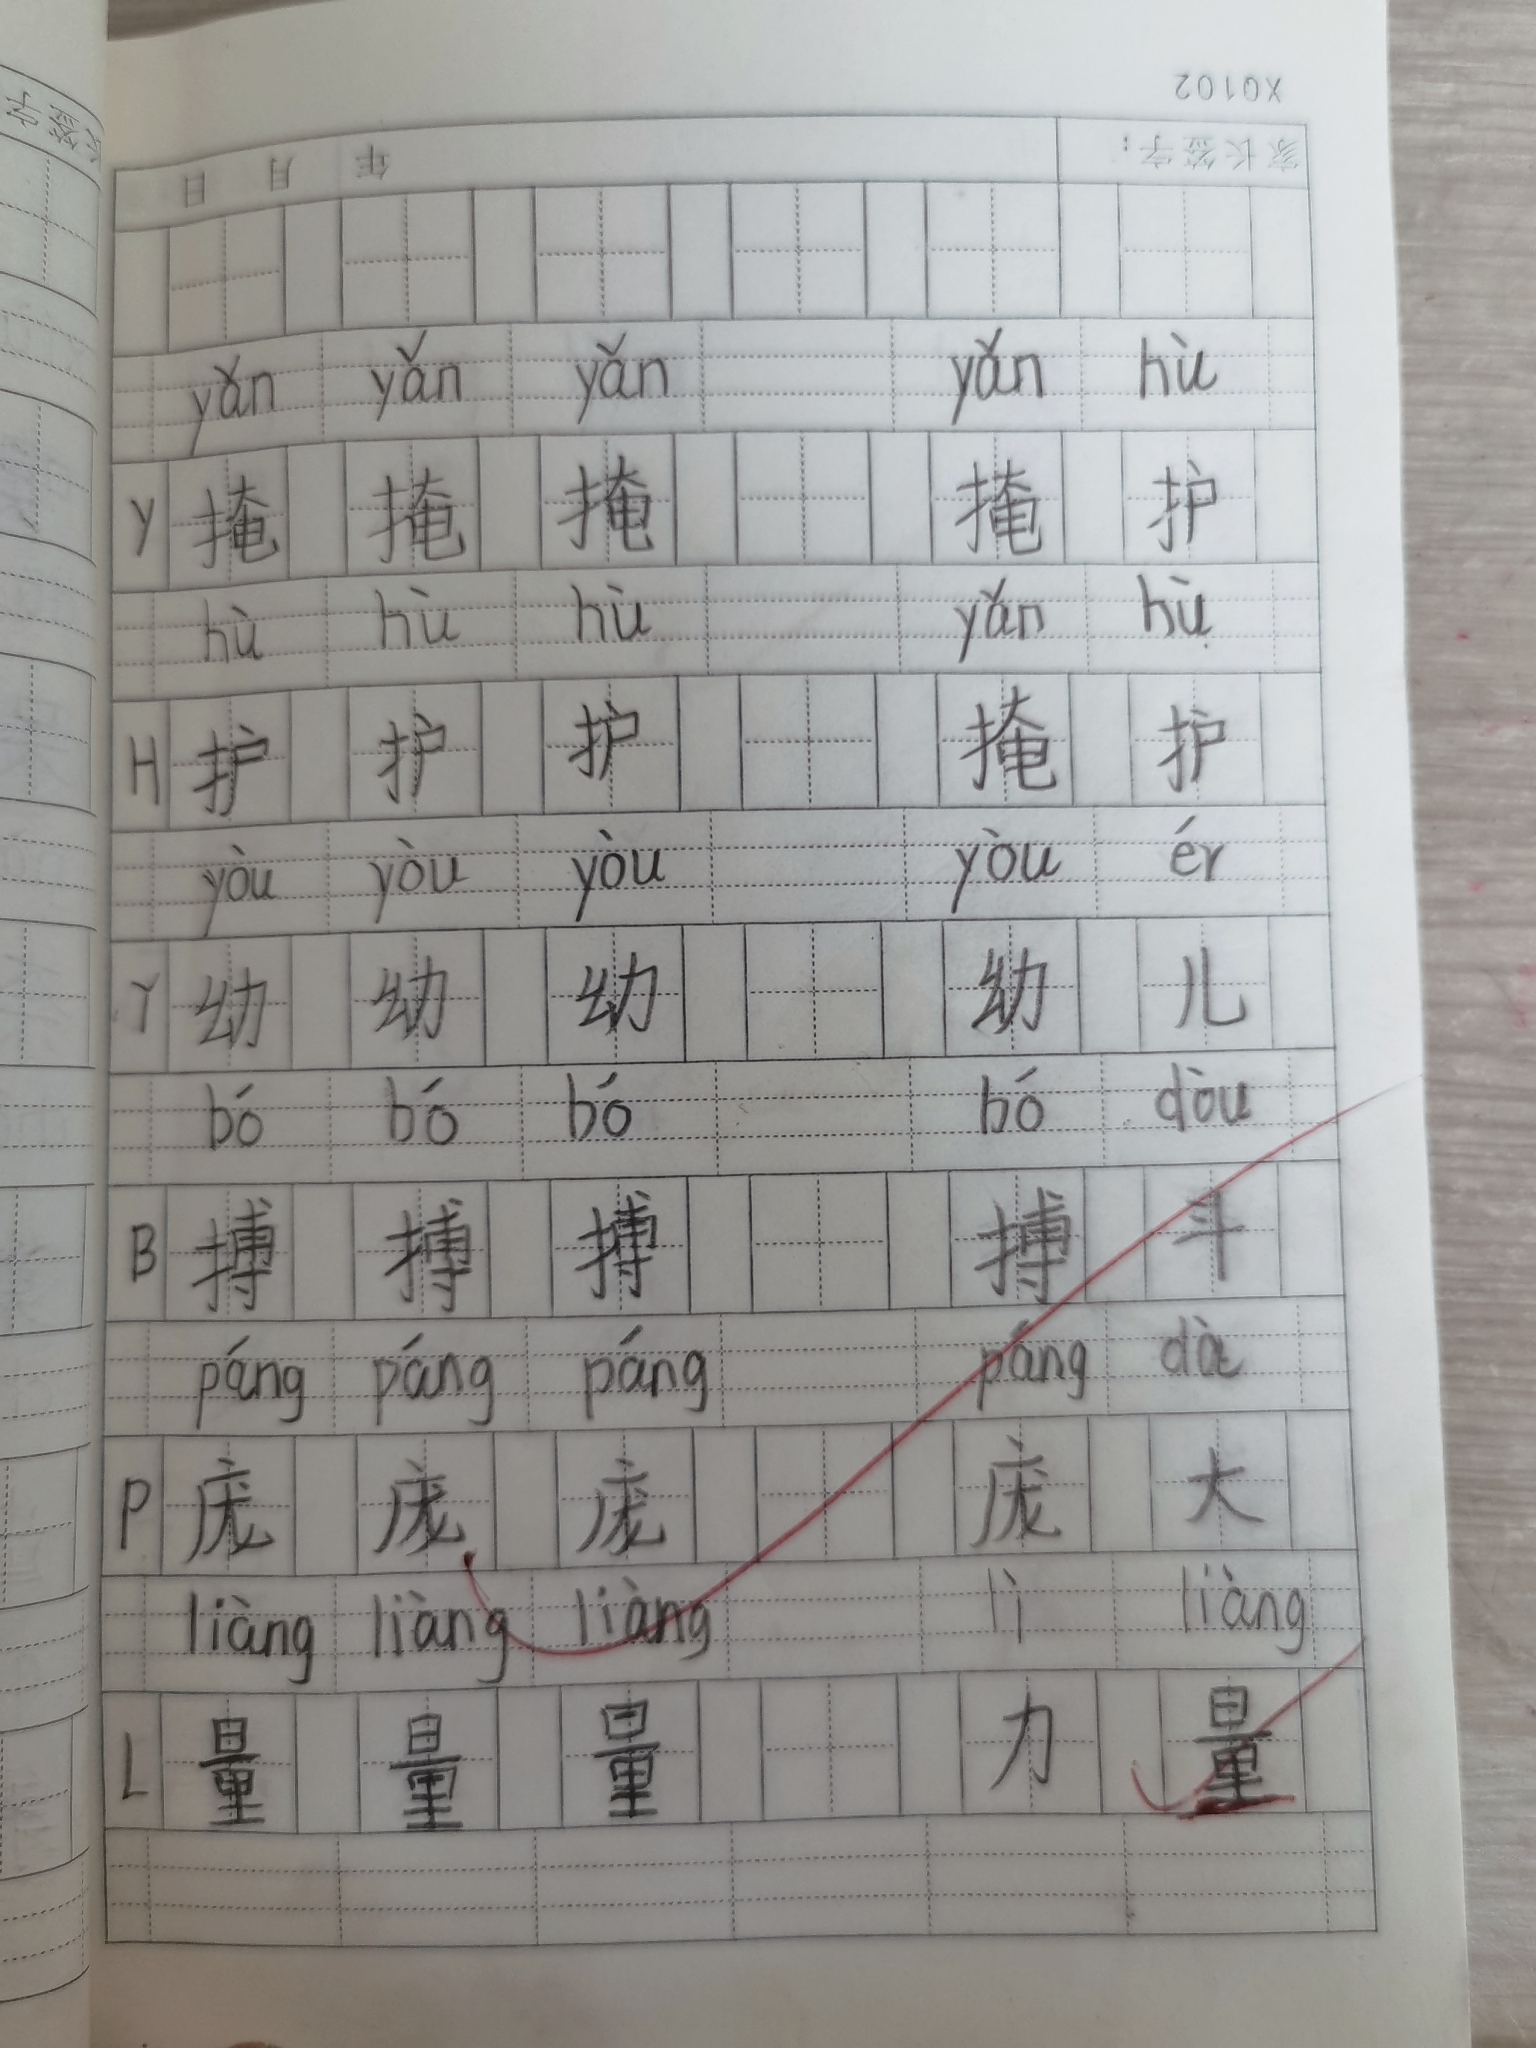 XQ102
家长签字：
年 月 日
yǎn yǎn yǎn yǎn hù
Y 掩 掩 掩 掩 护
hù hù hù yǎn hù
H 护 护 护 掩 护
yòu yòu yòu yòu ér
Y 幼 幼 幼 幼 儿
bó bó bó bó dòu
B 搏 搏 搏 搏 斗
páng páng páng páng dà
P 庞 庞 庞 庞 大
liàng liàng liàng lì liàng
L 量 量 量 力 量